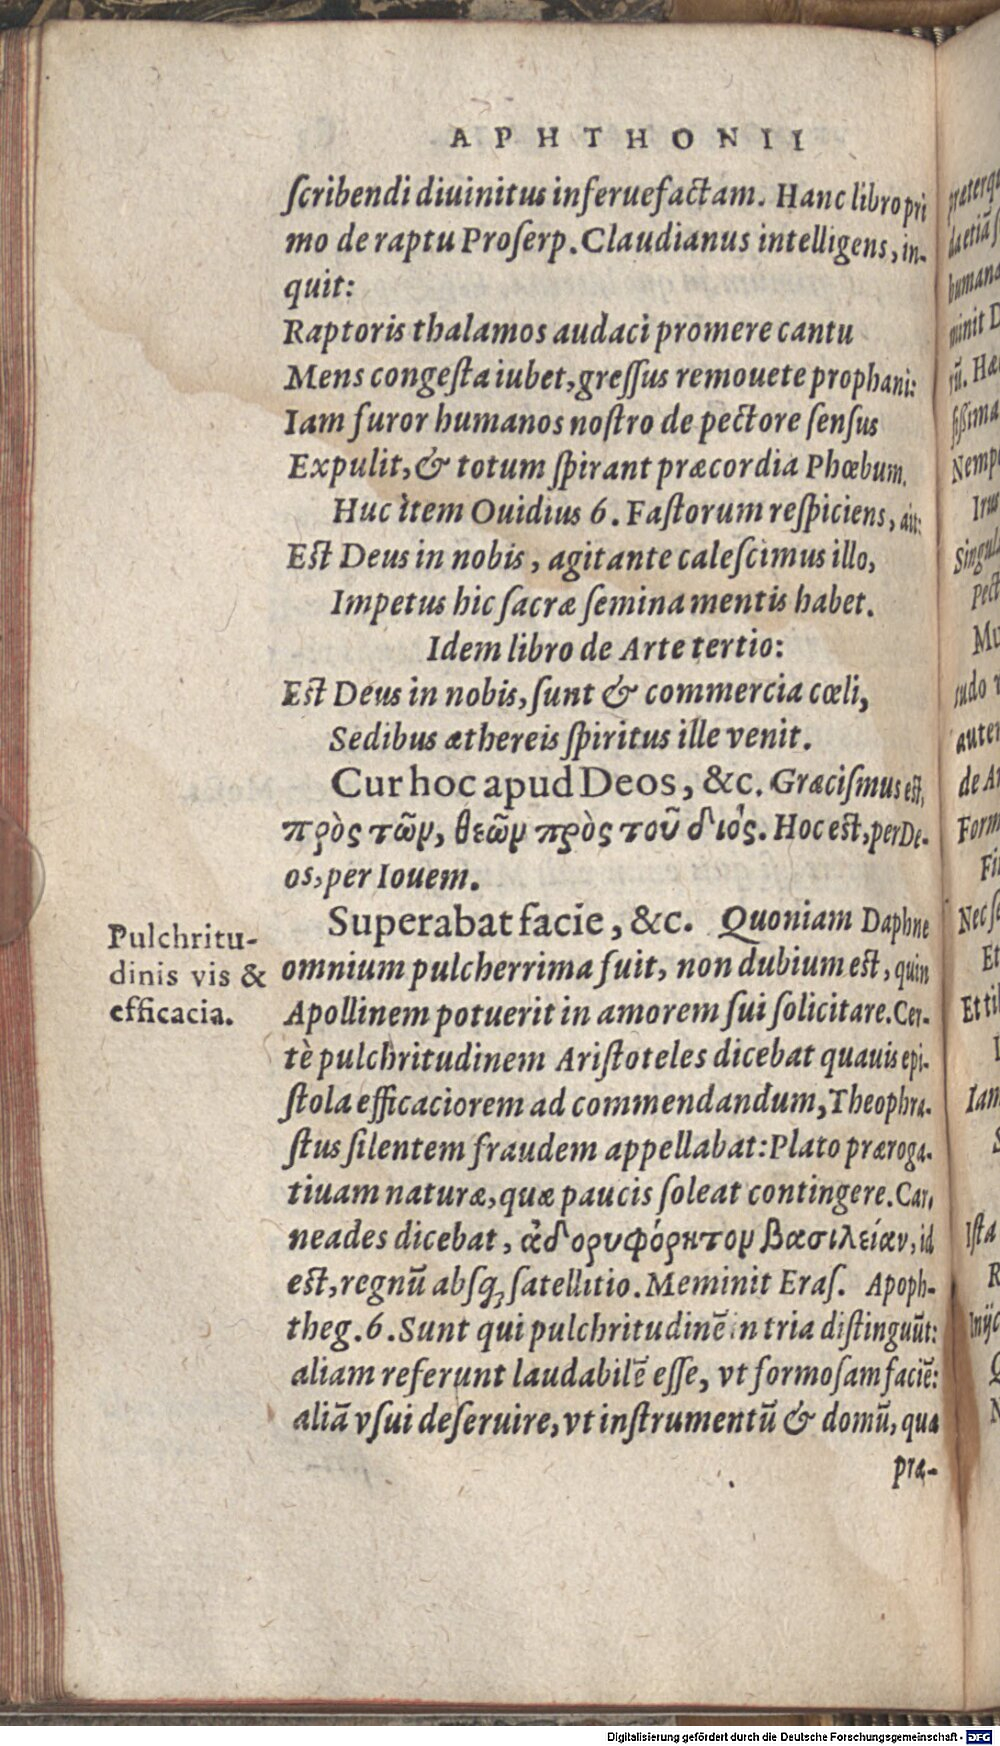 APHTHONII
ſcribendi diuinitus inferuefactam. Hanc libro pri
mo de raptu Proſerp. Claudianus intelligens, in-
quit:
Raptoris thalamos audaci promere cantu
Mens congeſta iubet, greſſus remouete prophani:
Iam furor humanos noſtro de pectore ſenſus
Expulit, & totum ſpirant præcordia Phœbum.
Huc item Ouidius 6. Faſtorum reſpiciens, ait:
Eſt Deus in nobis, agitante caleſcimus illo,
Impetus hic ſacræ ſemina mentis habet.
Idem libro de Arte tertio:
Eſt Deus in nobis, ſunt & commercia cœli,
Sedibus æthereis ſpiritus ille venit.
Cur hoc apud Deos, &c. Græciſmus eſt,
πρὸς τῶν, θεῶν πρὸς τοῦ διός. Hoc eſt, per De-
os, per Iouem.
Superabat facie, &c. Quoniam Daphne
omnium pulcherrima fuit, non dubium eſt, quin
Apollinem potuerit in amorem ſui ſolicitare. Cer-
tè pulchritudinem Ariſtoteles dicebat quauis epi-
ſtola efficaciorem ad commendandum, Theophra-
ſtus ſilentem fraudem appellabat: Plato præroga-
tiuam naturæ, quæ paucis ſoleat contingere. Car-
neades dicebat, ἀδορυφόρητον βασιλείαν, id
eſt, regnū abſq; ſatellitio. Meminit Eraſ. Apoph-
theg. 6. Sunt qui pulchritudinē in tria diſtinguūt:
aliam referunt laudabilē eſſe, vt formoſam faciē:
aliā vſui deſeruire, vt inſtrumentū & domū, qua
præ-
Pulchritu-
dinis vis &
efficacia.
præterq
da etiā ſ
humana
minit D
rū. Hæ
ſiſſima
Nempe
Irus
Singul
Pect
Mu
tudo
autem
de Ar
Form
Fi
Nec ſe
Et
Et ti
Iam
S
Iſta
R
Inijc
Q
N
Digitalisierung gefördert durch die Deutsche Forschungsgemeinschaft - DFG